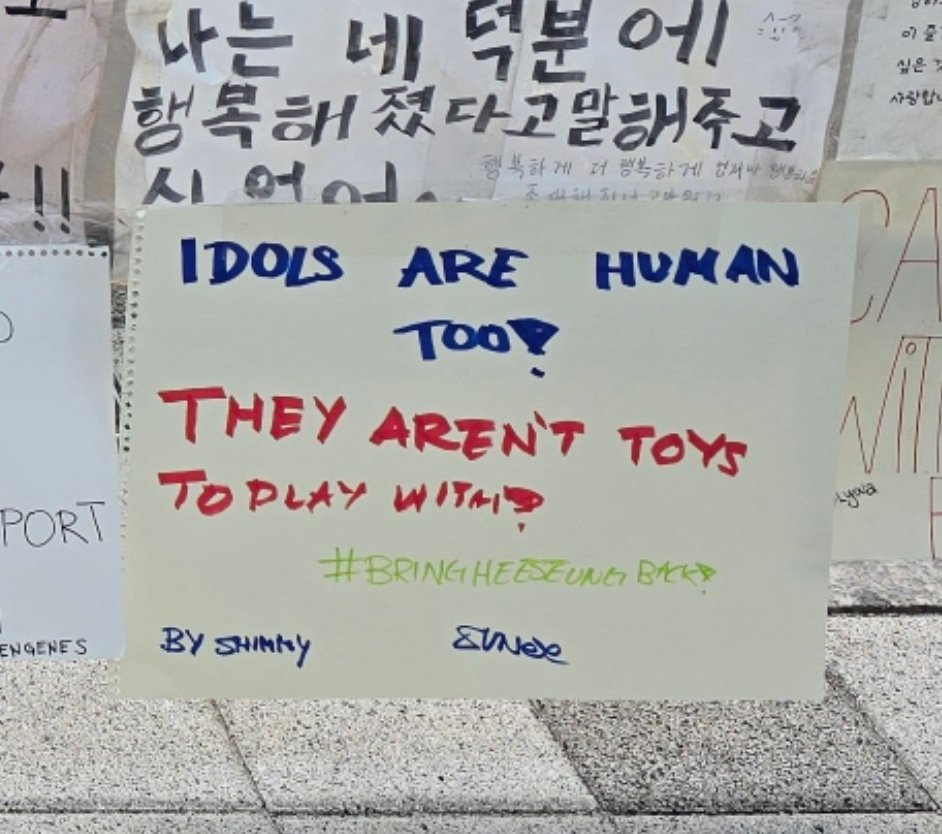 나는 네 덕분에
행복해졌다고말해주고
싶었어.
행복하게 더 행복하게
!!
이
싶은
사랑합니
IDOLS ARE HUMAN
TOO!
THEY AREN'T TOYS
TO PLAY WITH!
#BRINGHEESEUNG BACK!
BY SHIMMY
PORT
ENGENES
CA
Lynna